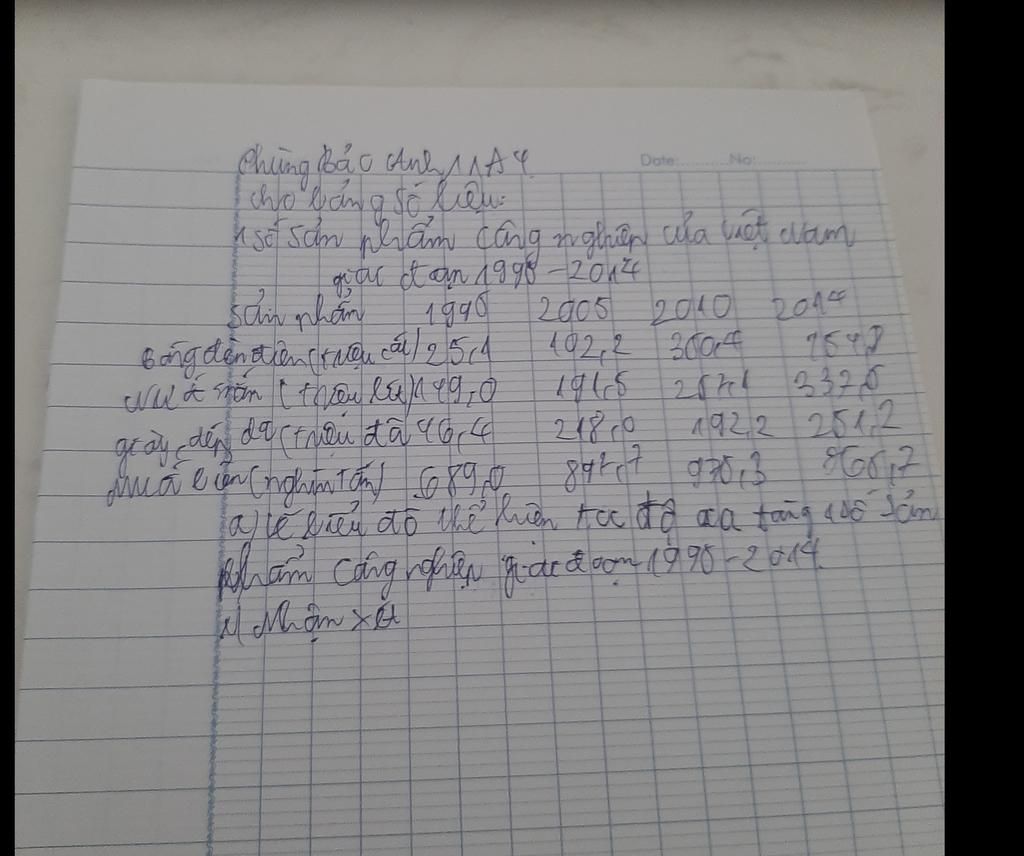 Phùng Bảo Anh 11A4
Date: No:
cho bảng số liệu:
1 số sản phẩm công nghiệp của việt Nam
giai đoạn 1995-2014
sản phẩm 1995 2005 2010 2014
bóng đèn điện (triệu cái) 25,1 192,2 360,4
nước mắm (triệu lít) 149,0 191,5 257,1 337,5
giày, dép da (triệu đôi 46,4 218,0 192,2 251,2
muối biển (nghìn tấn) 689,0 897,7 975,3
a) vẽ biểu đồ thể hiện tốc độ gia tăng 1 số sản
phẩm công nghiệp giai đoạn 1995-2014
Nhận xét